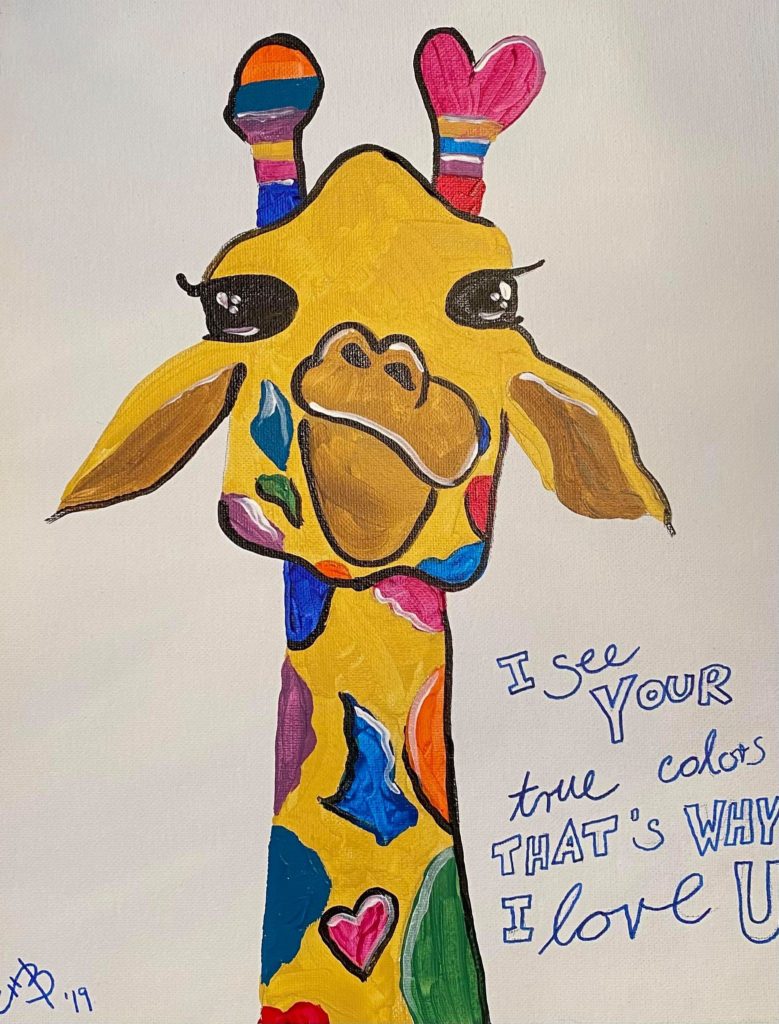 I see
YOUR
true colors
THAT's WHY
I love U
'19